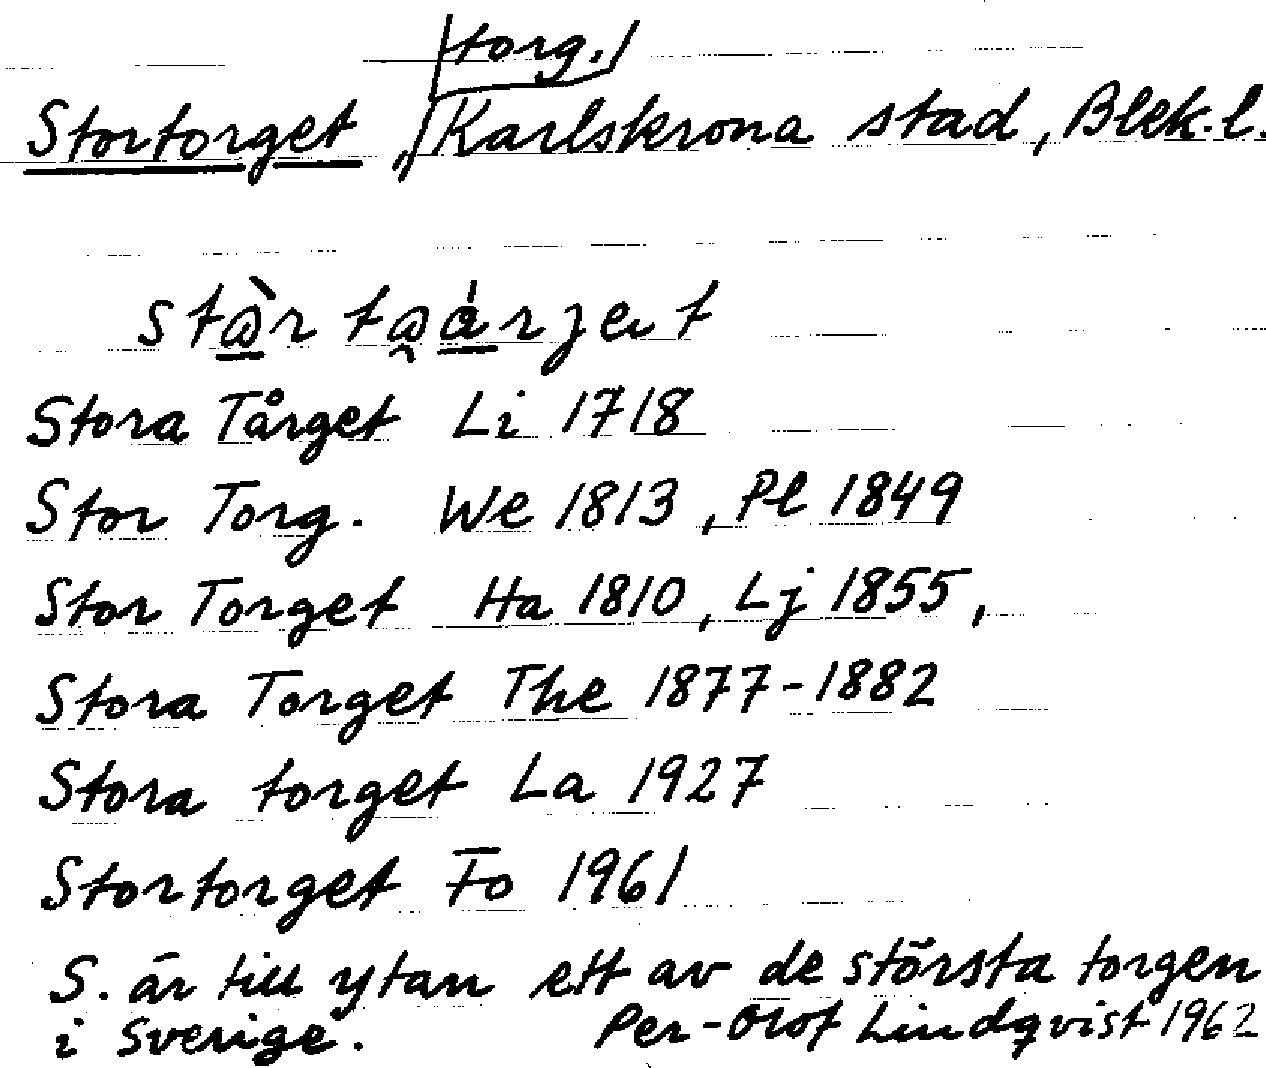 torg.
Stortorget, Karlskrona stad, Blek.l.
Stora Tårget Li 1718
Stor Torg. We 1813, Pl 1849
Stor Torget Ha 1810, Lj 1855,
Stora Torget The 1877-1882
Stora torget La 1927
Stortorget Fo 1961
S. är till ytan ett av de största torgen
i Sverige. Per-Olof Lindqvist 1962